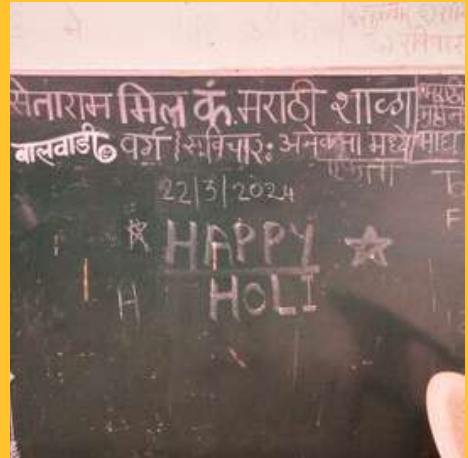 सिताराम मिल कं. मराठी शाळा
बालवाडी वर्ग सुविचार: अनेकता मध्ये
एकता
22/3/2024
HAPPY
H HOLI